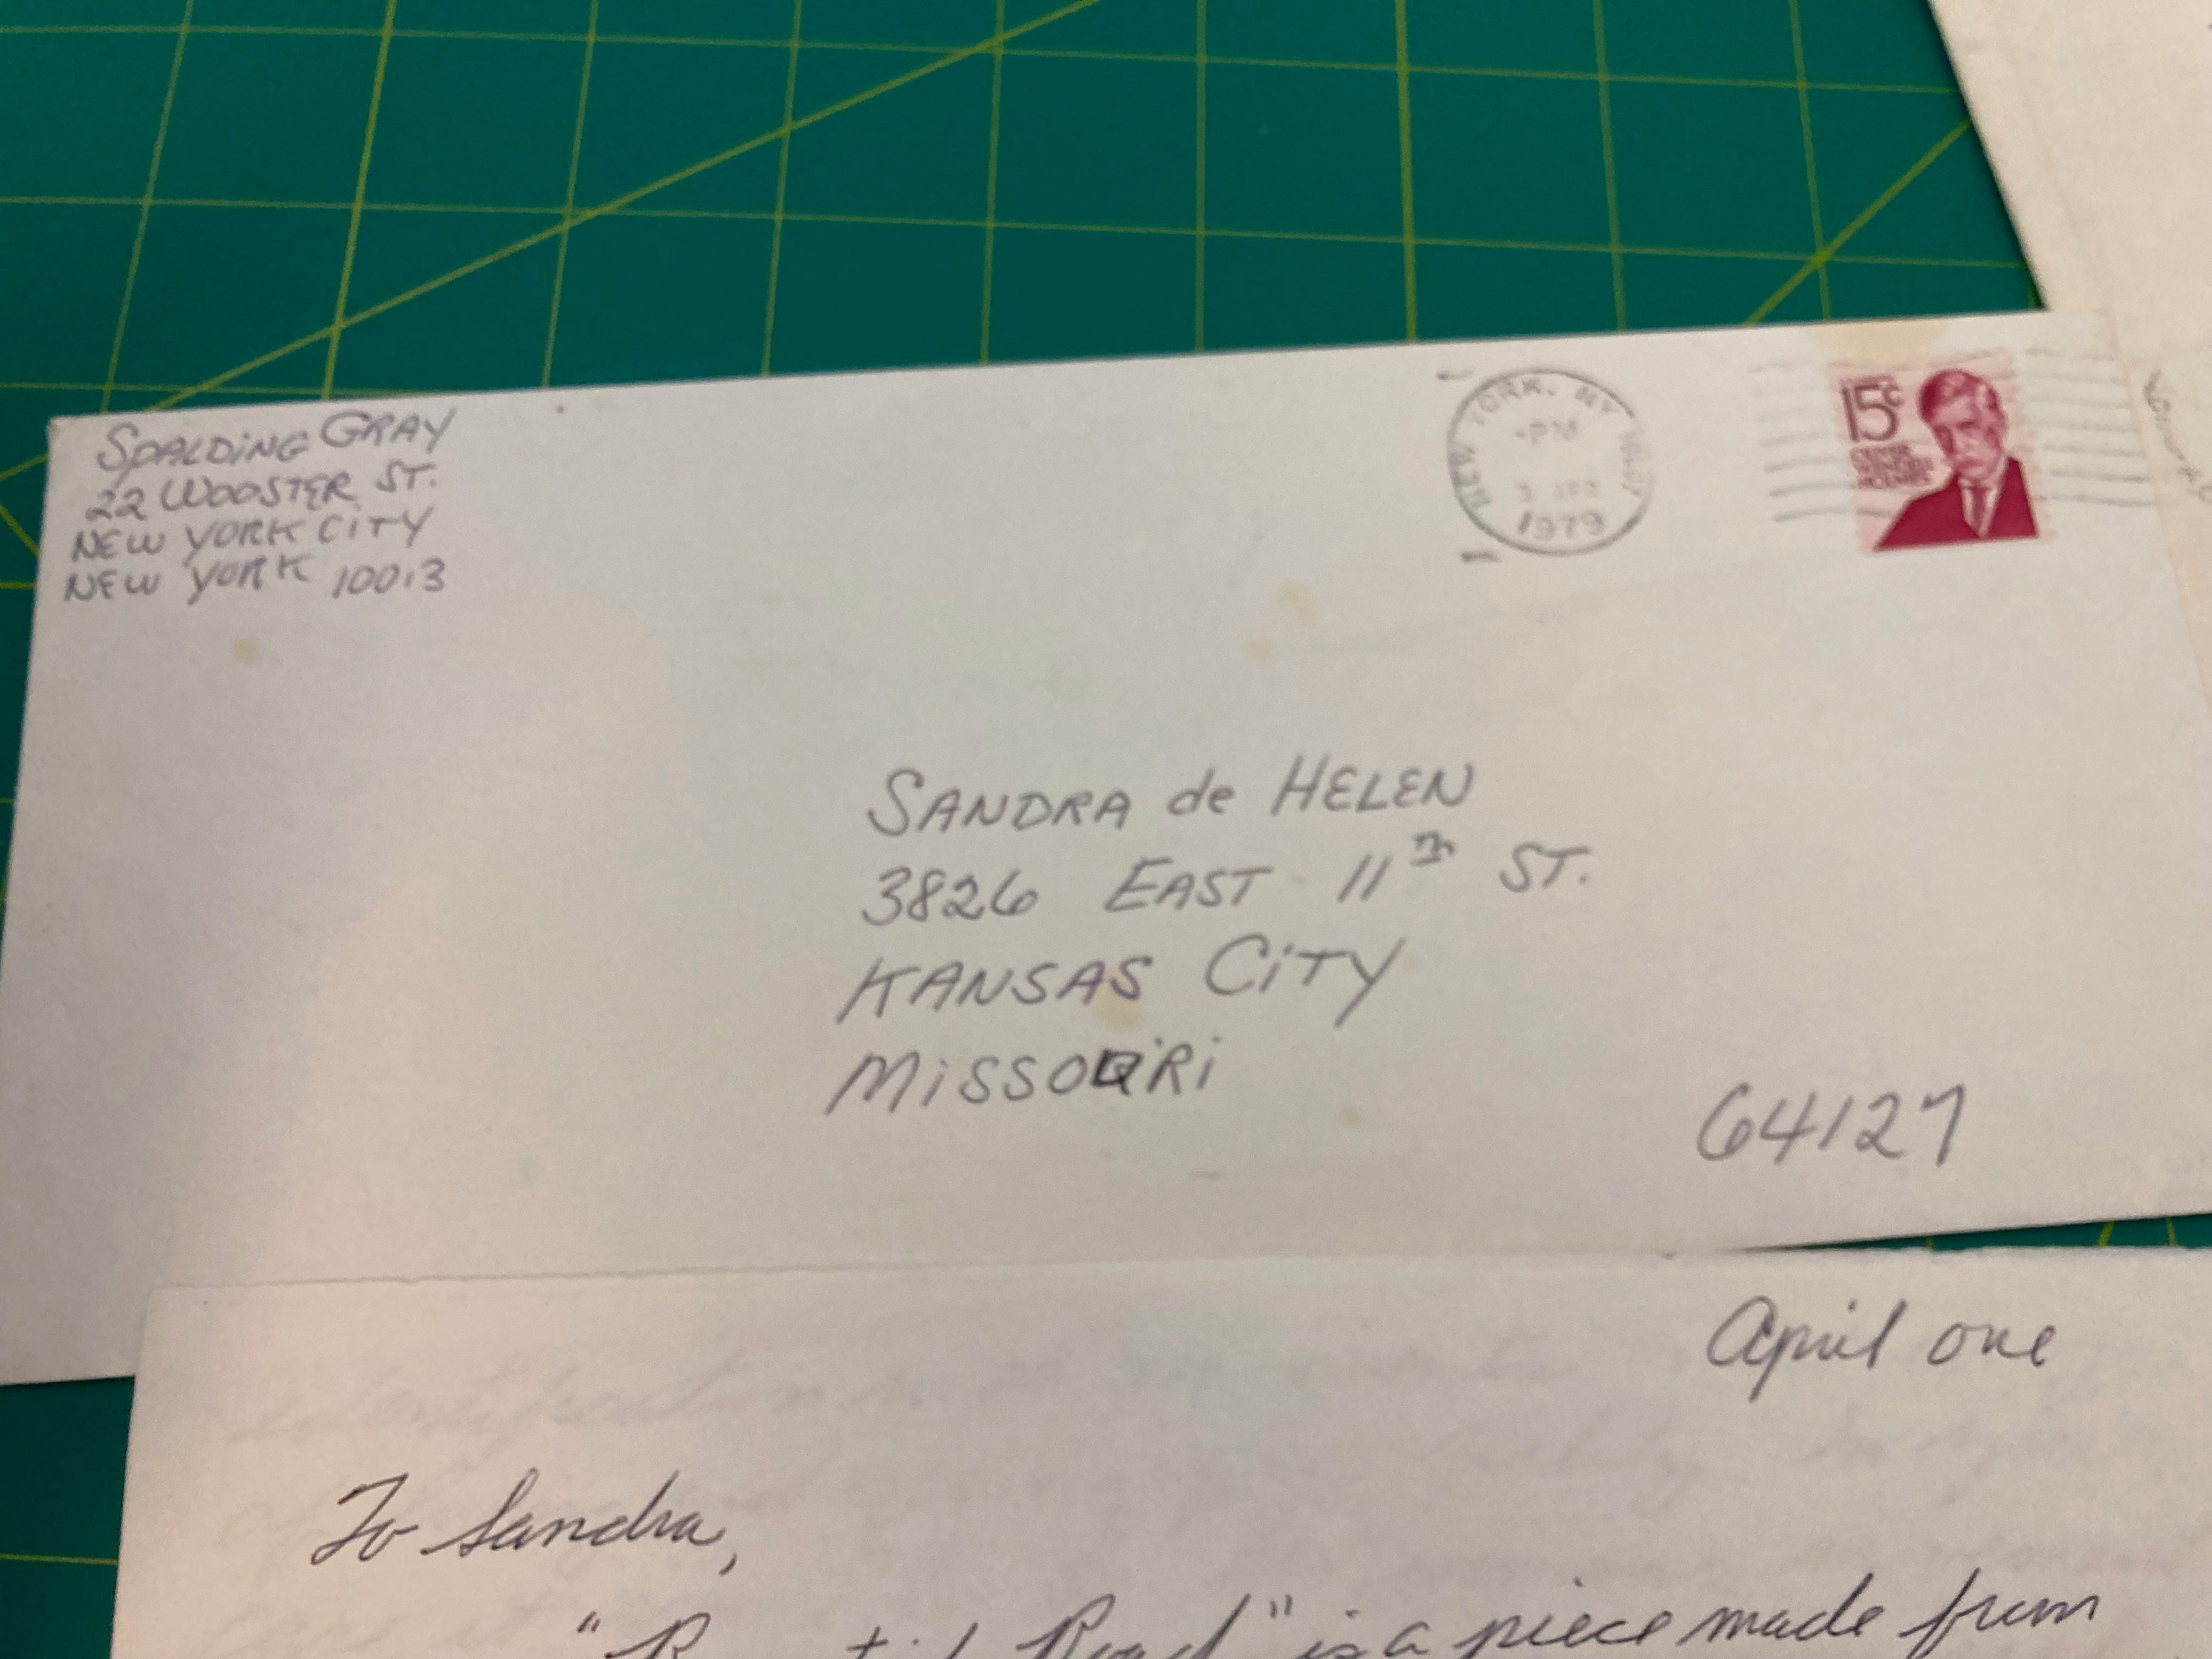 SPALDING GRAY
22 WOOSTER ST.
NEW YORK CITY
NEW YORK 10013
NEW YORK. NY
PM
3 APR
1979
15¢
OLIVER
WENDELL
HOLMES
SANDRA de HELEN
3826 EAST 11TH ST.
KANSAS CITY
MISSOURI
64127
April one
To Sandra,
Road" is a piece made from